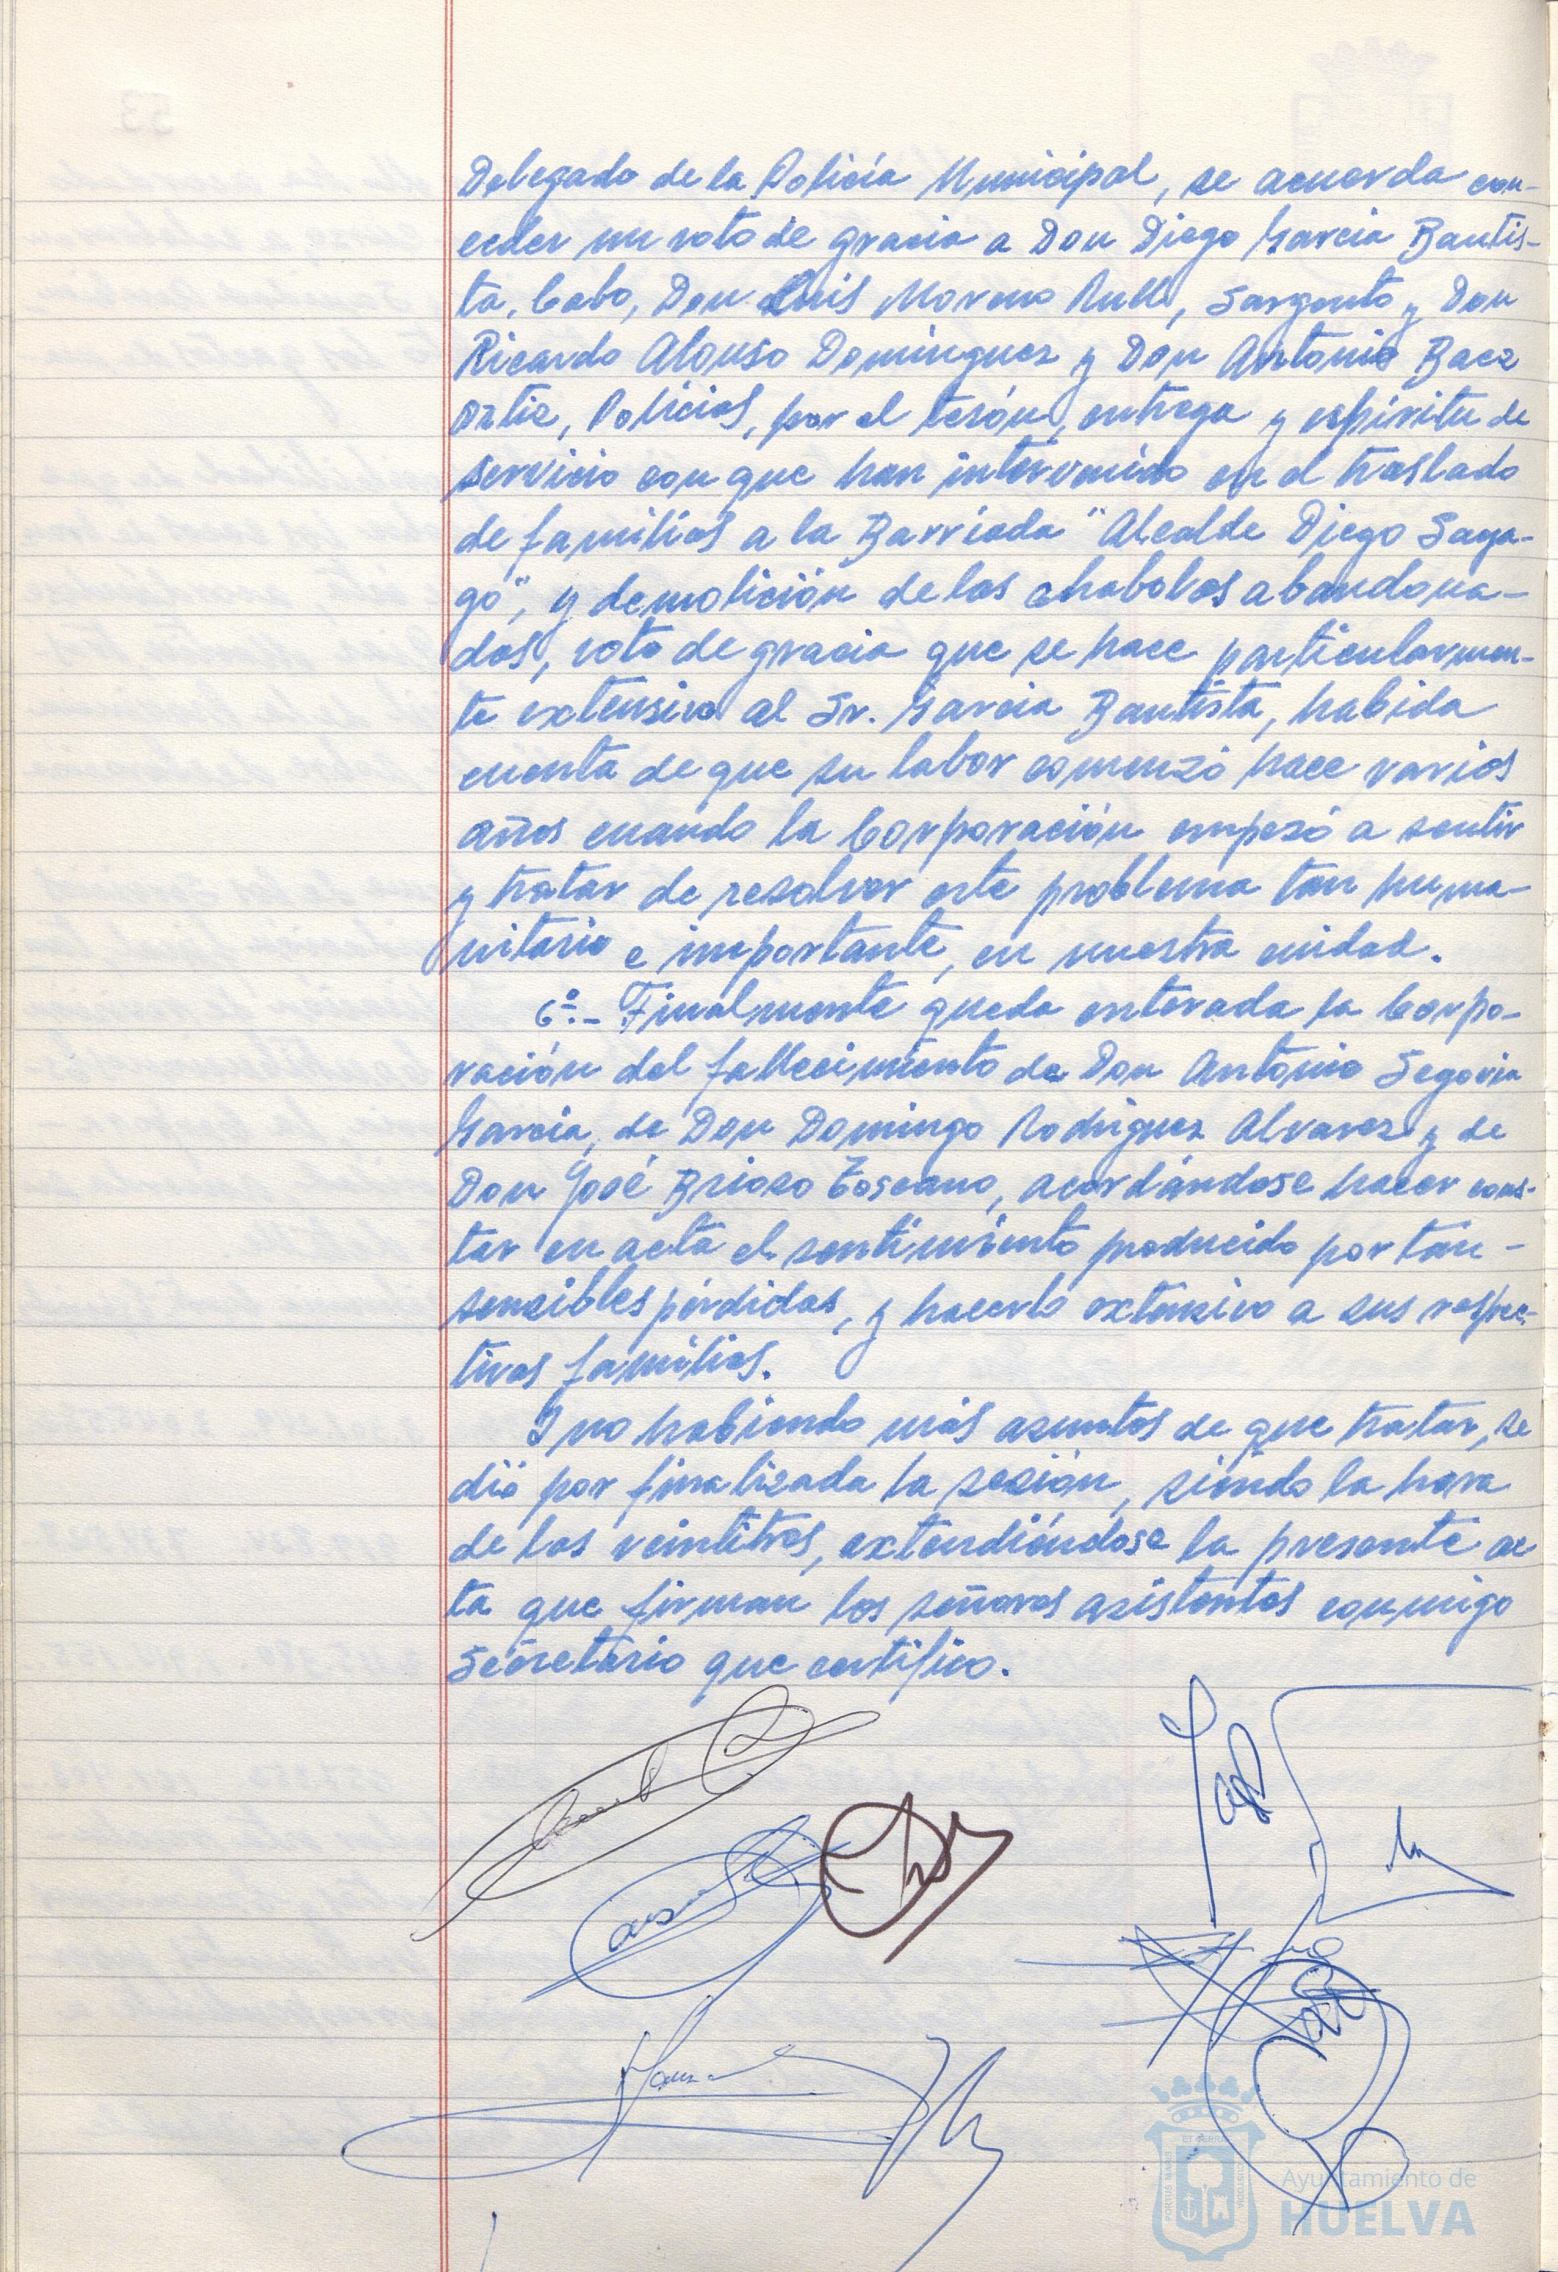 Delegado de la Policía Municipal, se acuerda con-
ceder un voto de gracia a Don Diego Garcia Bautis-
ta, Cabo, Don Luis Moreno Rull, Sargento y Don
Ricardo Alonso Dominguez y Don Antonio Baez
Ortiz, Policias, por el tesón, entrega y espíritu de
servicio con que han intervenido en el traslado
de familias a la Barriada "Alcalde Diego Saya-
go", y demolición de las chabolas abandona-
das, voto de gracia que se hace particularmen-
te extensivo al Sr. Garcia Bautista, habida
cuenta de que su labor comenzó hace varios
años cuando la Corporación empezó a sentir
y tratar de resolver este problema tan huma-
nitario e importante, en nuestra ciudad.
6º.- Finalmente queda enterada la Corpo-
ración del fallecimiento de Don Antonio Segovia
Garcia, de Don Domingo Rodriguez Alvarez y de
Don José Brioso Toscano, acordándose hacer cons-
tar en acta el sentimiento producido por tan -
sensibles pérdidas, y hacerlo extensivo a sus respec-
tivas familias.
Y no habiendo más asuntos de que tratar, se
dió por finalizada la sesión, siendo la hora
de las veintitres, extendiéndose la presente ac
ta que firman los señores asistentes conmigo
Secretario que certifico.
Ayuntamiento de
HUELVA